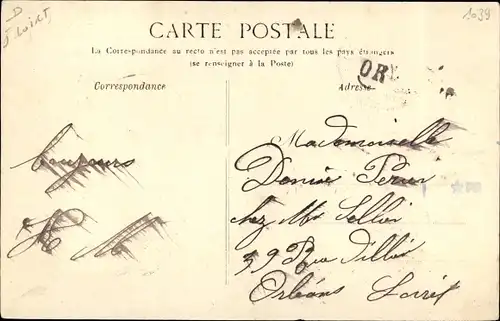 1039
CARTE POSTALE
La Correspondance au recto n'est pas acceptée par tous les pays étrangers
(se renseigner à la Poste)
OR
Correspondance
Adresse
Mademoiselle
Denise
chez Mr Sellier
39 Rue
Orléans Loiret